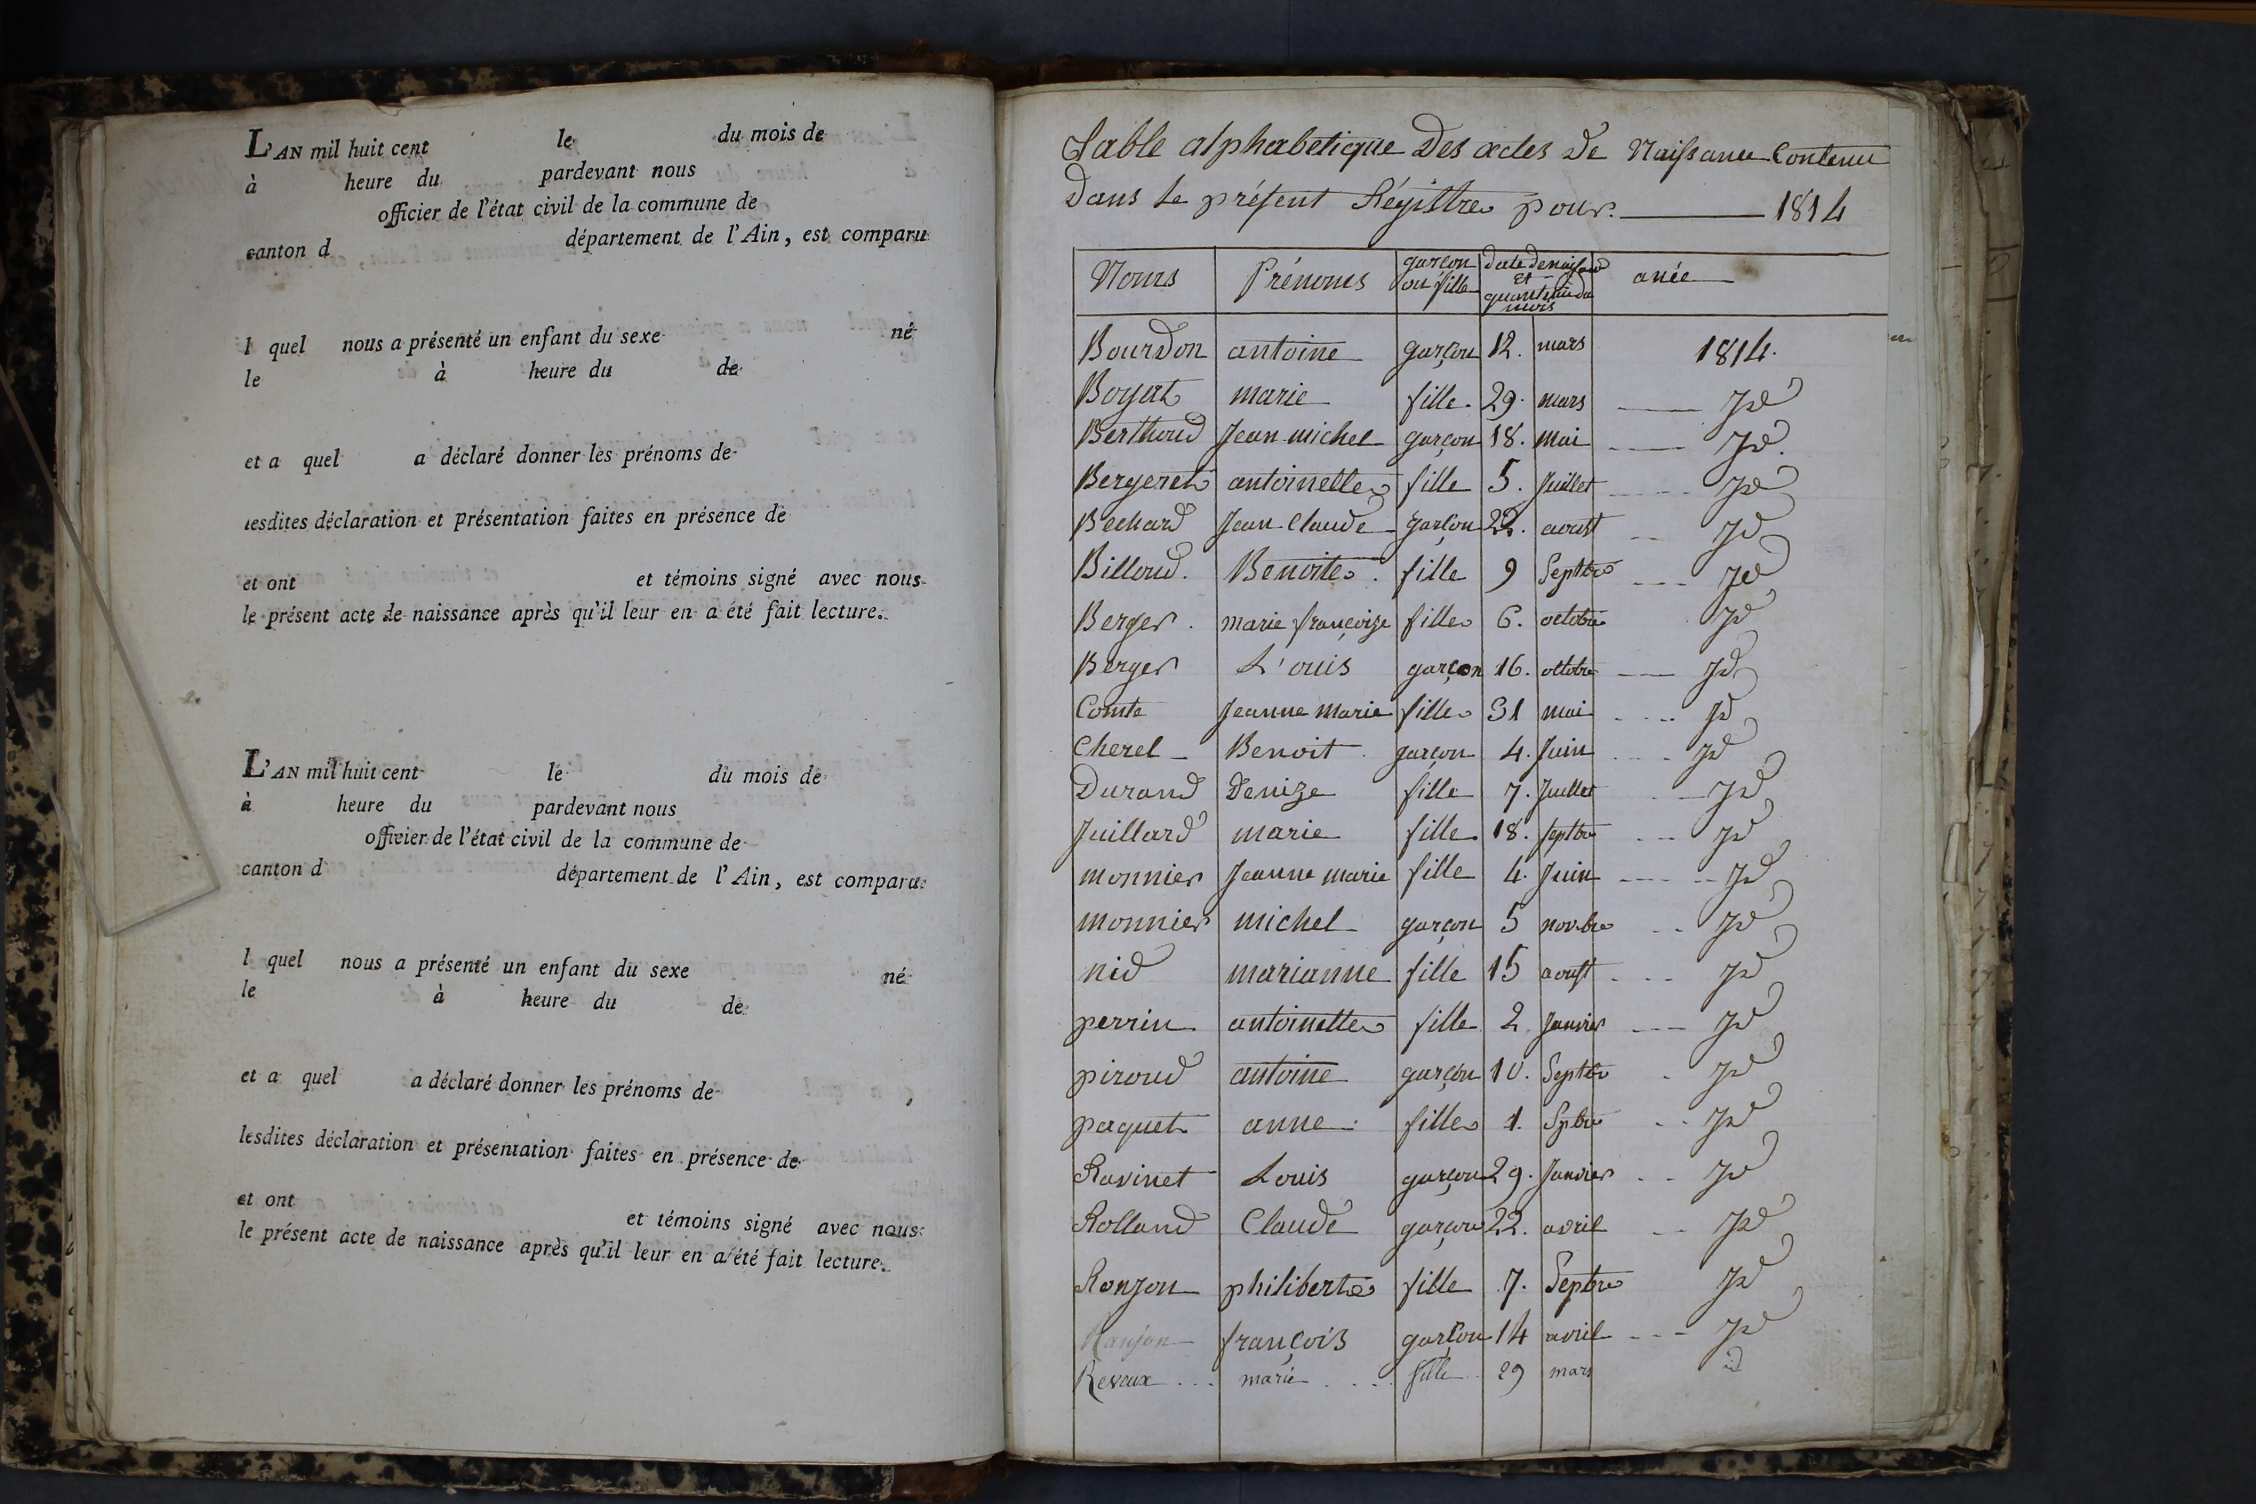 L'AN mil huit cent le du mois de
à heure du pardevant nous
officier de l'état civil de la commune de
canton d département de l'Ain, est comparu
l quel nous a présenté un enfant du sexe né
le à heure du de
et a quel a déclaré donner les prénoms de
lesdites déclaration et présentation faites en présence de
et ont et témoins signé avec nous
le présent acte de naissance après qu'il leur en a été fait lecture.
L'AN mil huit cent le du mois de
à heure du pardevant nous
officier de l'état civil de la commune de
canton d département de l'Ain, est comparu
l quel nous a présenté un enfant du sexe né
le à heure du de
et a quel a déclaré donner les prénoms de
lesdites déclaration et présentation faites en présence de
et ont et témoins signé avec nous
le présent acte de naissance après qu'il leur en a été fait lecture.
Table alphabetique Des actes De Naissance Contenu
Dans le présent Régistre pour 1814
Noms Prénoms garçon ou fille date de naissance Et quantième du mois anée
Bourdon antoine garçon 12. mars 1814.
Boyat marie fille. 29. mars Jd
Berthoud Jean michel garçon 18. mai Jd.
Bergeret antoinette fille 5. Juillet Jd
Bechard Jean Claude garçon 22. aoust Jd
Billoud. Benoite. fille 9 Septbre Jd
Berger. marie françoize fille 6. octobre Jd
Berger L'ouis garçon 16. octobre Jd
Comte Jeanne Marie fille 31 mai Jd
Cherel Benoit garçon 4. Juin Jd
Durand Denize fille 7. Juillet Jd
Juillard marie fille 18. septbre Jd
monnier Jeanne marie fille 4. Juin Jd
monnier michel garçon 5 novbre Jd
nid marianne fille 15 aoust Jd
perrin antoinette fille 2 Janvier Jd
piroud antoine garçon 10. Septbre Jd
paquet anne fille 1. Spbre Jd
Ravinet Louis garçon 29. Janvier Jd
Rolland Claude garçon 22. avril Jd
Ronzon philiberte fille 7. Septbre Jd
françois garçon 14 avril Jd
Reveux marie fille 29 mars id